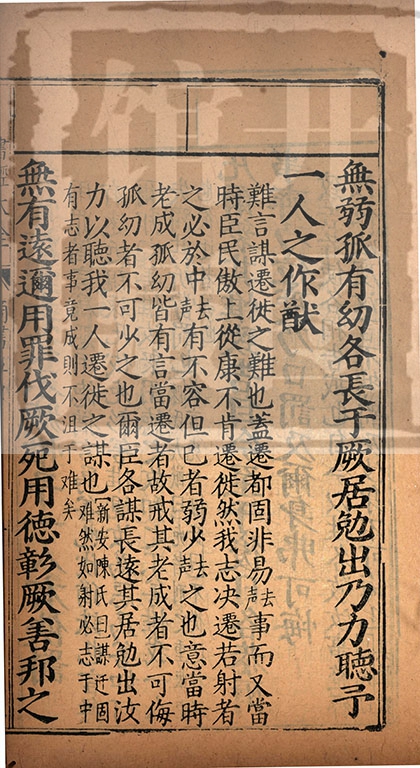 無弱孤有幼各長于厥居勉出乃力聽予
一人之作猷
難言謀遷徙之難也蓋遷都固非易去聲事而又當
時臣民傲上從康不肯遷徙然我志决遷若射者
之必於中去聲有不容但已者弱少去聲之也意當時
老成孤幼皆有言當遷者故戒其老成者不可侮
孤幼者不可少之也爾臣各謀長遠其居勉出汝
力以聽我一人遷徙之謀也新安陳氏曰謀迁固難然如射必志于中
有志者事竟成則不沮于难矣
無有遠邇用罪伐厥死用德彰厥善邦之